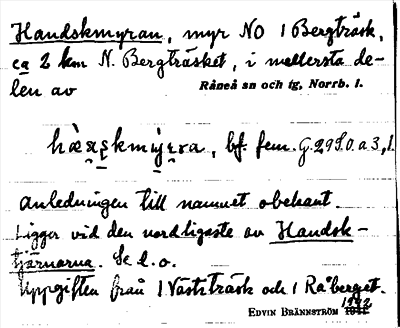 Handskmyran, myr NO 1 Bergträsk,
ca 2 km N. Bergträsket, i mellersta de-
len av
Råneå sn och tg, Norrb. l.
bf. fem. G. 29 S.O. a 3, 1.
Anledningen till namnet obekant.
Ligger vid den nordligaste av Handsk-
tjärnarna. Se l.o.
Uppgiften från 1 Västiträsk och 1 Råberget.
EDVIN BRÄNNSTRÖM 1942